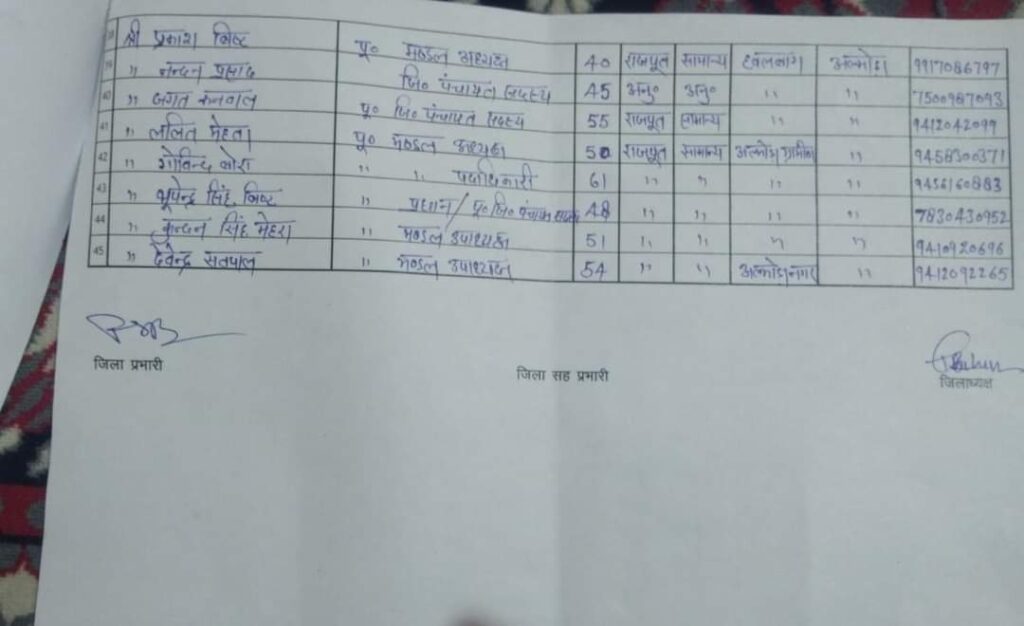 38 श्री प्रकाश बिष्ट पू० मण्डल अध्यक्ष 40 राजपूत सामान्य हवलबाग अल्मोड़ा 9917086797
39 " नन्दन प्रसाद जि० पंचायत सदस्य 45 अनु० अनु० " " 7500987093
40 " जगत कनवाल पू० जि० पंचायत सदस्य 55 राजपूत सामान्य " " 9412042099
41 " ललित मेहता पू० मण्डल अध्यक्ष 50 राजपूत सामान्य अल्मोड़ा ग्रामीण " 9458300371
42 " गोविन्द बोरा " " पदाधिकारी 61 " " " " 9456160883
43 " भूपेन्द्र सिंह बिष्ट " प्रधान/पू० जि० पंचायत सदस्य 48 " " " " 7830430952
44 " कुन्दन सिंह मेहरा " मण्डल उपाध्यक्ष 51 " " " " 9410920696
45 " देवेन्द्र सतपाल " मण्डल उपाध्यक्ष 54 " " अल्मोड़ा नगर " 9412092265
जिला प्रभारी
जिला सह प्रभारी
जिलाध्यक्ष